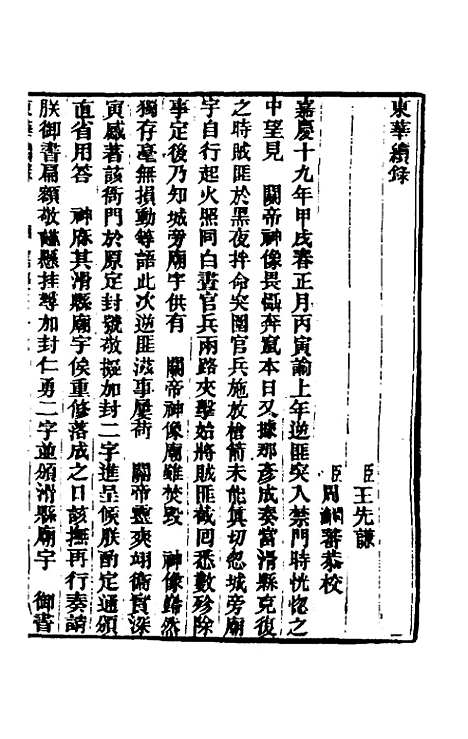 東華續錄
臣王先謙
臣周 蕃恭校
嘉慶十九年甲戌春正月丙寅諭上年逆匪突入禁門時恍惚之
中望見 關帝神像畏懾奔竄本日又據那彥成奏當滑縣克復
之時賊匪於黑夜拌命突圍官兵施放槍箭未能真切忽城旁廟
宇自行起火照同白晝官兵兩路夾擊始將賊匪截回悉數殄除
事定後乃知城旁廟宇供有 關帝神像廟雖焚毀 神像巋然
獨存毫無損動等語此次逆匪滋事屢荷 關帝靈爽翊衛實深
寅感著該衙門於原定封號敬擬加封二字進呈候朕酌定通頒
直省用答 神庥其滑縣廟宇俟重修落成之日該撫再行奏請
朕御書扁額敬謹懸挂尋加封仁勇二字並頒滑縣廟宇 御書